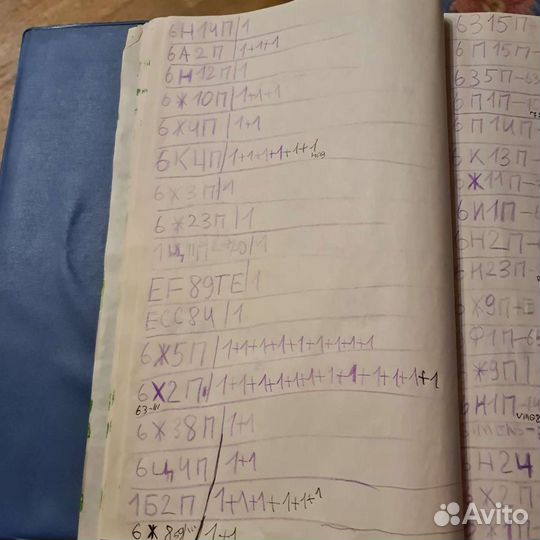 6Н14П/1
6А2П/1+1+1
6Н12П/1
6Ж10П/1+1+1
6Х4П/1+1
6К4П/1+1+1+1+1+1
6Х3П/1
6Ж23П/1
1Ц11П /1
EF89TE/1
ECC84/1
6Ж5П/1+1+1+1+1+1+1+1+1+1
6Х2П/
63-III
6Ж38П/1+1
6Ц4П/1+1
1Б2П/1+1+1+1+1+1
6Ж8 /1+1
6З15П-
6П15П-
6З5П-63
6П1П-
6П14П-
6К13П-
Ж11П-
6И1П-
6Н2П-
6Н23П-
Ж9П
Ф1П-65
Ж9П
6Н1П-
6Н24
6Х2П
Avito